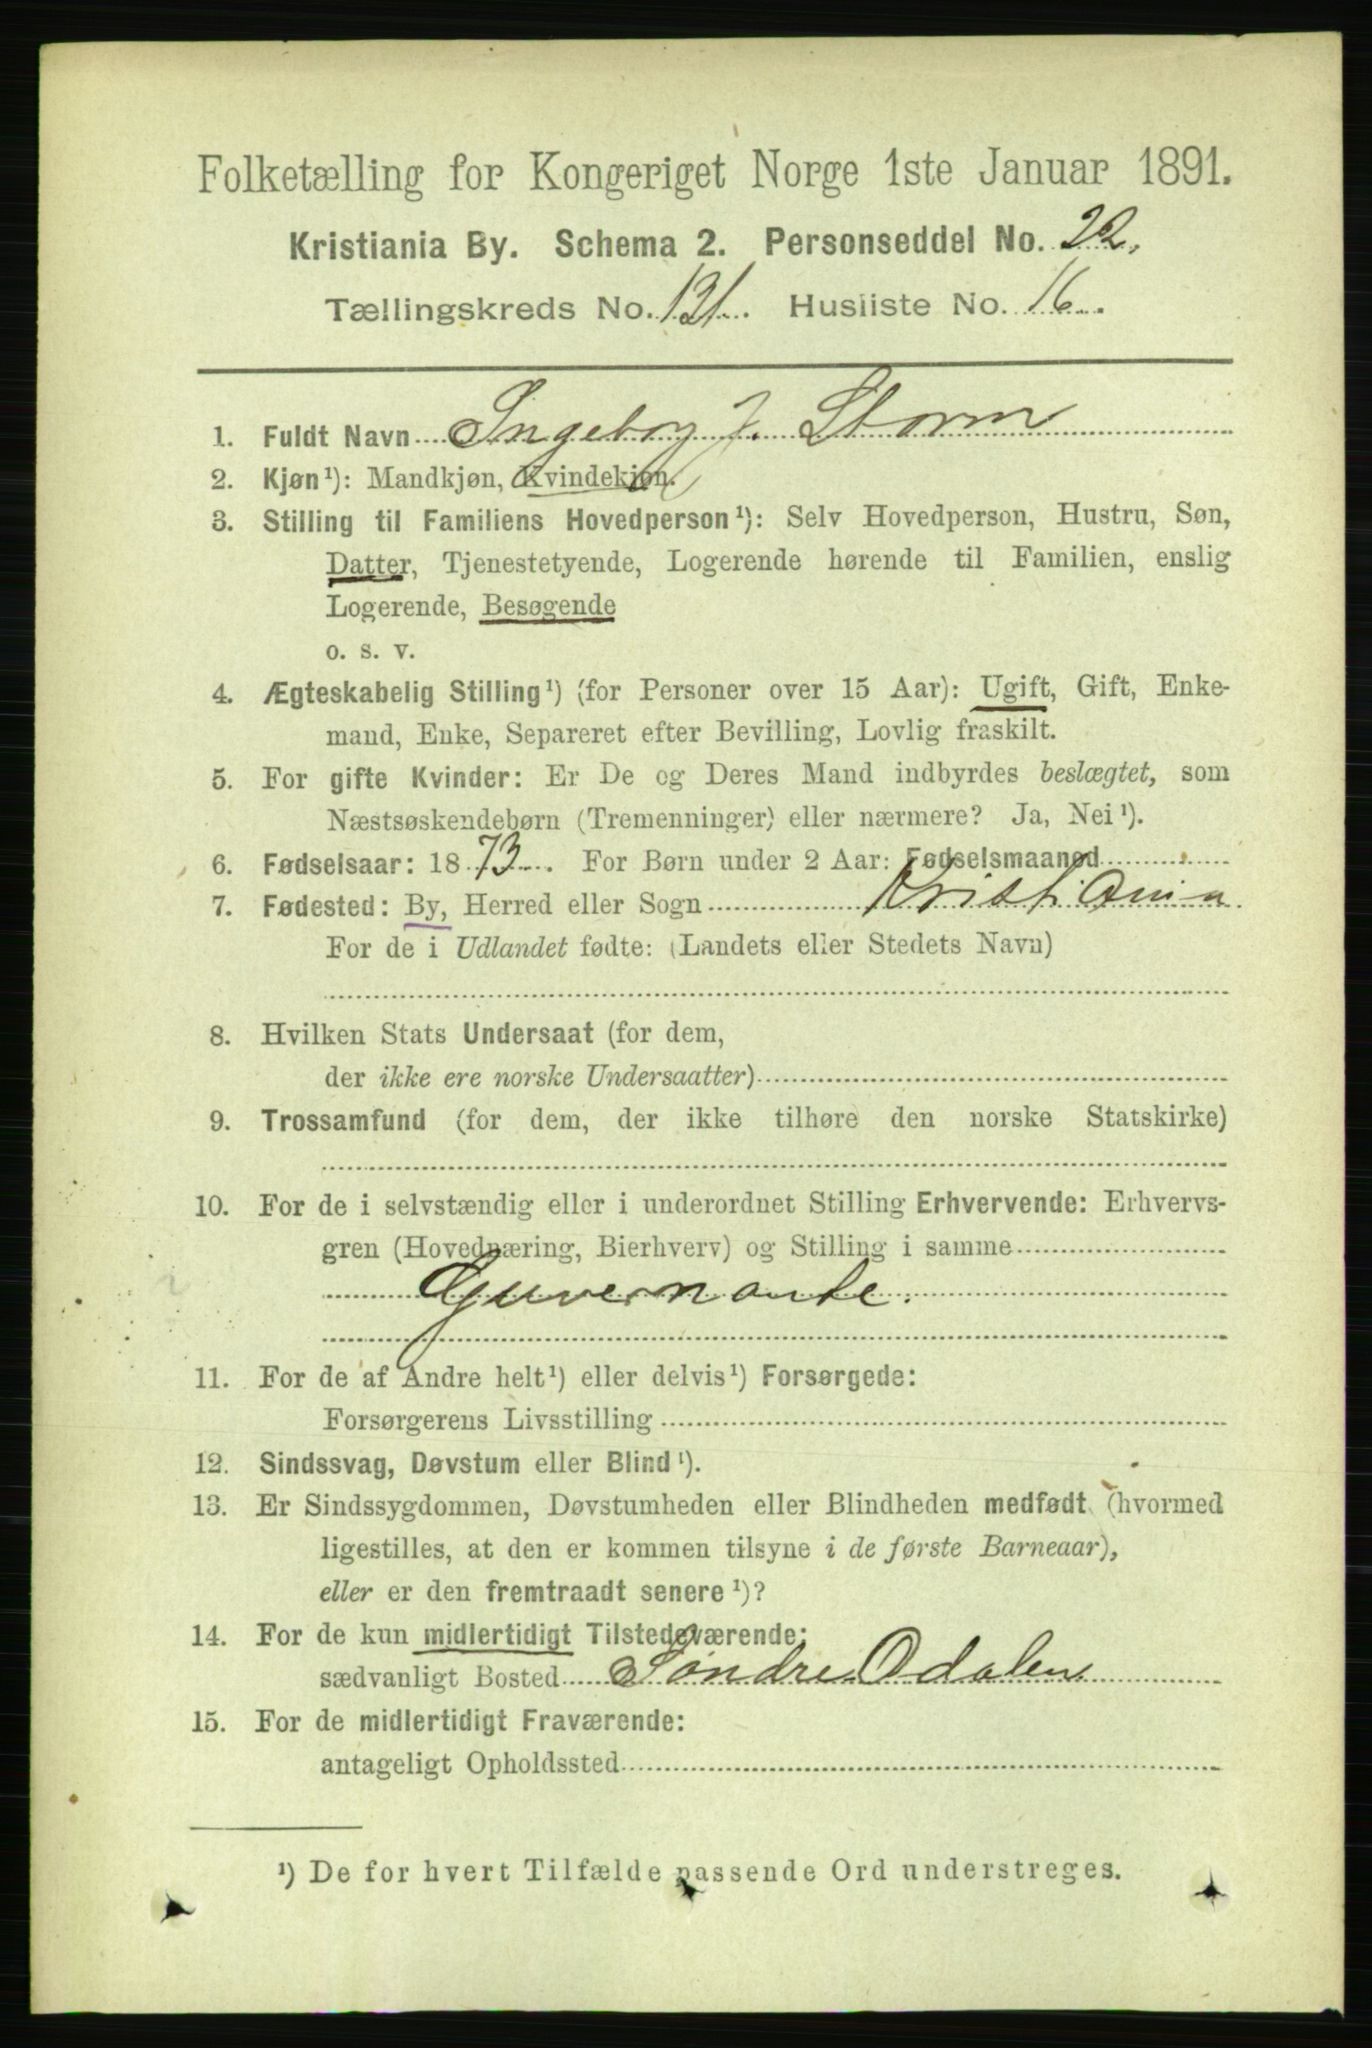 Folketælling for Kongeriget Norge 1ste Januar 1891.
Kristiania By. Schema 2. Personseddel No. 22.
Tællingskreds No. 131. Husliste No. 16.
1. Fuldt Navn Ingeborg J. Storm
2. Kjøn¹): Mandkjøn, Kvindekjøn.
3. Stilling til Familiens Hovedperson¹): Selv Hovedperson, Hustru, Søn,
Datter, Tjenestetyende, Logerende hørende til Familien, enslig
Logerende, Besøgende
o. s. v.
4. Ægteskabelig Stilling¹) (for Personer over 15 Aar): Ugift, Gift, Enke-
mand, Enke, Separeret efter Bevilling, Lovlig fraskilt.
5. For gifte Kvinder: Er De og Deres Mand indbyrdes beslægtet, som
Næstsøskendebørn (Tremenninger) eller nærmere? Ja, Nei¹).
6. Fødselsaar: 1873. For Børn under 2 Aar: Fødselsmaaned
7. Fødested: By, Herred eller Sogn Kristiania
For de i Udlandet fødte: (Landets eller Stedets Navn)
8. Hvilken Stats Undersaat (for dem,
der ikke ere norske Undersaatter)
9. Trossamfund (for dem, der ikke tilhøre den norske Statskirke)
10. For de i selvstændig eller i underordnet Stilling Erhvervende: Erhvervs-
gren (Hovednæring, Bierhverv) og Stilling i samme
Guvernante.
11. For de af Andre helt¹) eller delvis¹) Forsørgede:
Forsørgerens Livsstilling
12. Sindssvag, Døvstum eller Blind¹).
13. Er Sindssygdommen, Døvstumheden eller Blindheden medfødt (hvormed
ligestilles, at den er kommen tilsyne i de første Barneaar),
eller er den fremtraadt senere¹)?
14. For de kun midlertidigt Tilstedeværende:
sædvanligt Bosted Söndre Odalen
15. For de midlertidigt Fraværende:
antageligt Opholdssted
¹) De for hvert Tilfælde passende Ord understreges.